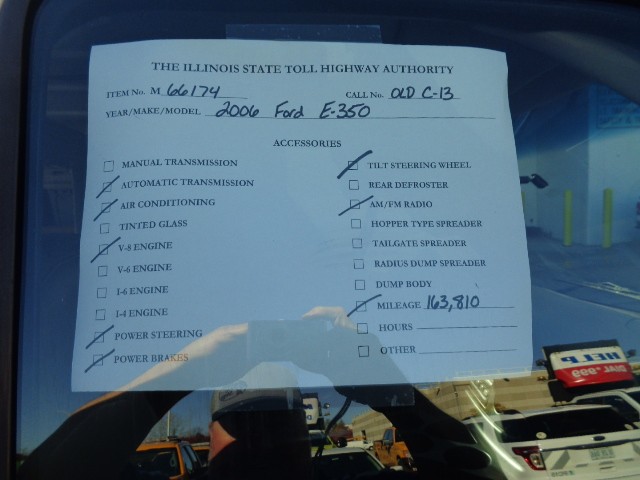 THE ILLINOIS STATE TOLL HIGHWAY AUTHORITY
ITEM No. M 66174 CALL No. OLD C-13
YEAR/MAKE/MODEL 2006 Ford E-350
ACCESSORIES
MANUAL TRANSMISSION
AUTOMATIC TRANSMISSION
AIR CONDITIONING
TINTED GLASS
V-8 ENGINE
V-6 ENGINE
I-6 ENGINE
I-4 ENGINE
POWER STEERING
POWER BRAKES
TILT STEERING WHEEL
REAR DEFROSTER
AM/FM RADIO
HOPPER TYPE SPREADER
TAILGATE SPREADER
RADIUS DUMP SPREADER
DUMP BODY
MILEAGE 163,810
HOURS
OTHER
HELP
DIAL *999